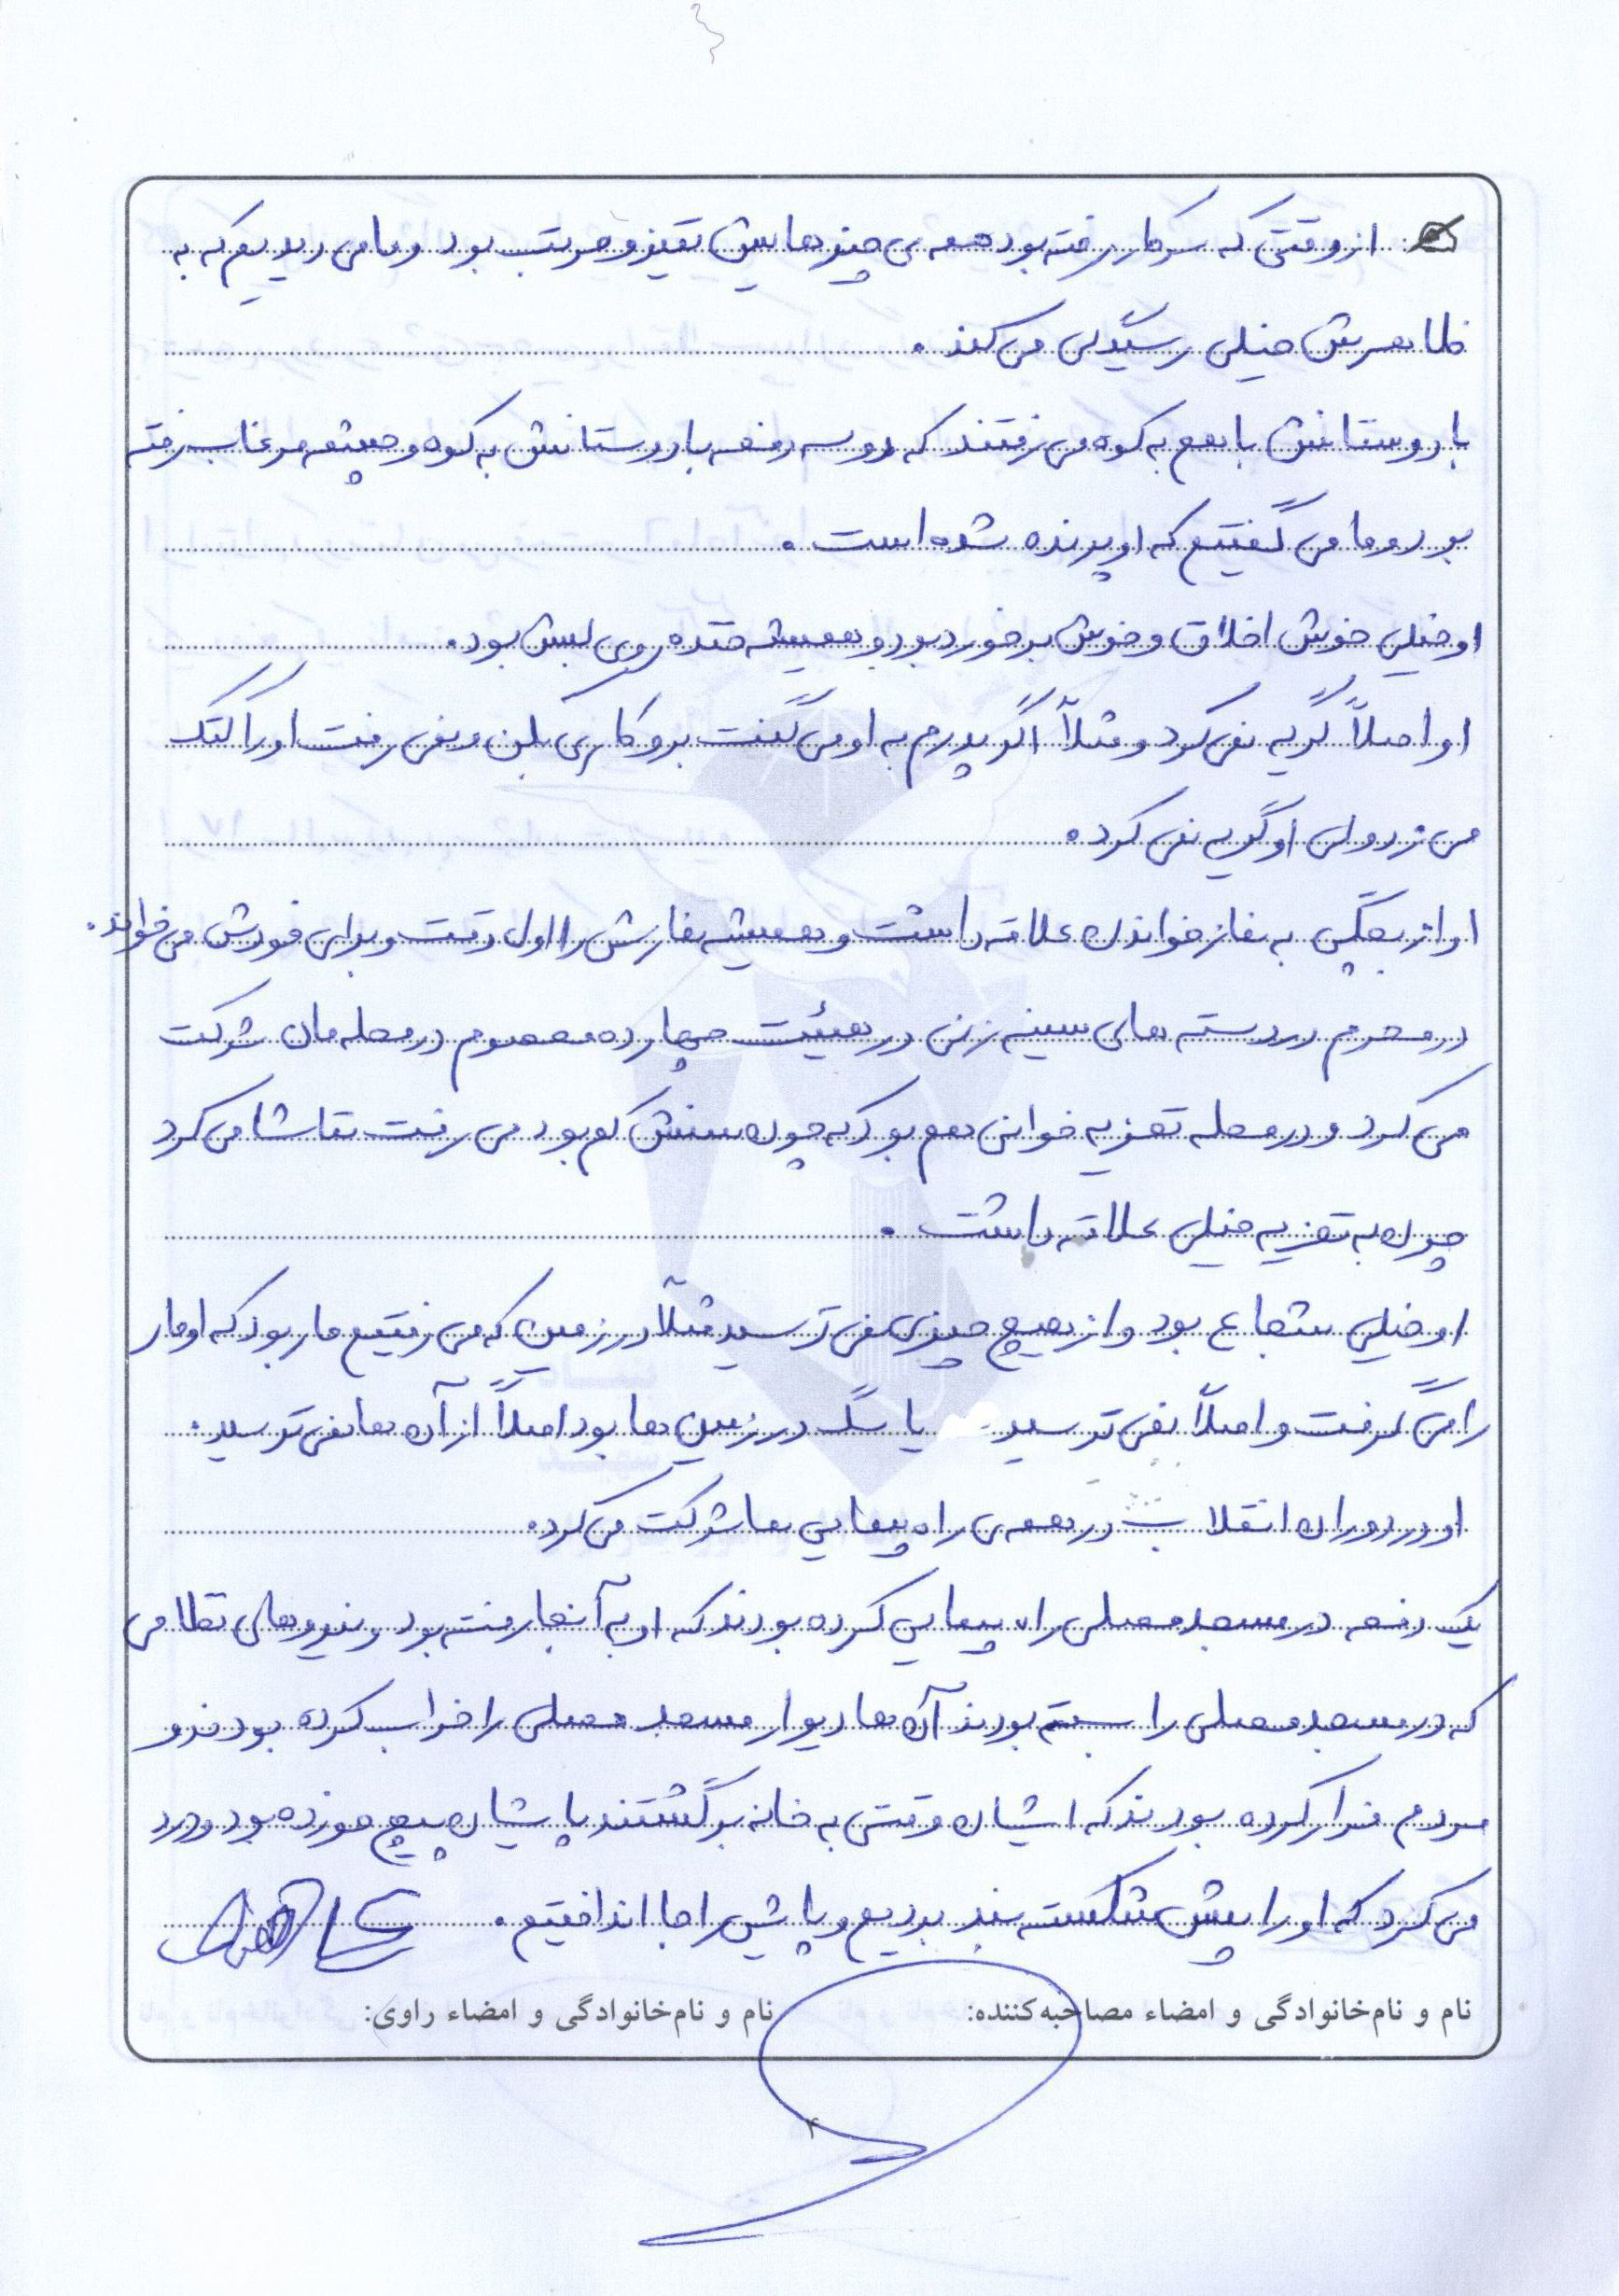 از وقتی که سر کار رفته بود همه ی چیزهایش تمیز و مرتب بود و ما می دیدیم که به
ظاهرش خیلی رسیدگی می کند.
با دوستانش با هم به کوه می رفتند که دو سه دفعه با دوستانش به کوه و چشمه مرغاب رفته
بود و ما می گفتیم که او پرنده شده است.
او خیلی خوش اخلاق و خوش برخورد بود و همیشه خنده روی لبش بود.
او اصلاً گریه نمی کرد و مثلاً اگر پدرم به او می گفت برو کاری بکن و نمی رفت او را کتک
می زد ولی او گریه نمی کرد.
او از بچگی به نماز خواندن علاقه داشت و همیشه نمازش را اول وقت و برای خودش می خواند.
در محرم در دسته های سینه زنی در هیئت چهارده معصوم در محله مان شرکت
می کرد و در محله تعزیه خوانی هم بود که چون سنش کم بود می رفت تماشا می کرد
چون به تعزیه خیلی علاقه داشت.
او خیلی شجاع بود و از هیچ چیزی نمی ترسید مثلاً در زمین که می رفتیم مار بود که او مار
را می گرفت و اصلاً نمی ترسید یا سگ در زمین ها بود اصلاً از آن ها نمی ترسید.
او در دوران انقلاب در همه ی راه پیمایی ها شرکت می کرد.
یک دفعه در مسجد مصلی راه پیمایی کرده بودند که او به آنجا رفته بود و نیروهای نظامی
که در مسجد مصلی را بسته بودند آن ها دیوار مسجد مصلی را خراب کرده بودند و
مردم فرار کرده بودند که ایشان وقتی به خانه برگشتند پایشان پیچ خورده بود و درد
می کرد که او را پیش شکسته بند بردیم و پایش را جا انداختیم.
نام و نام‌خانوادگی و امضاء مصاحبه‌کننده: نام و نام‌خانوادگی و امضاء راوی:
۴